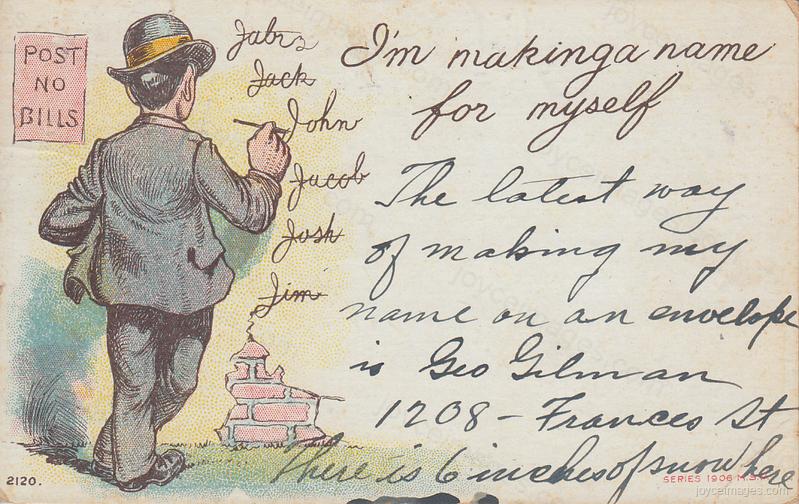 POST
NO
BILLS
Jabez
Jack
John
Jacob
Josh
Jim
I'm making a name
for myself
The latest way
of making my
name on an envelope
is Geo Gilman
1208 - Frances St
There is 6 inches of snow here
2120.
SERIES 1906
joyceimages.com